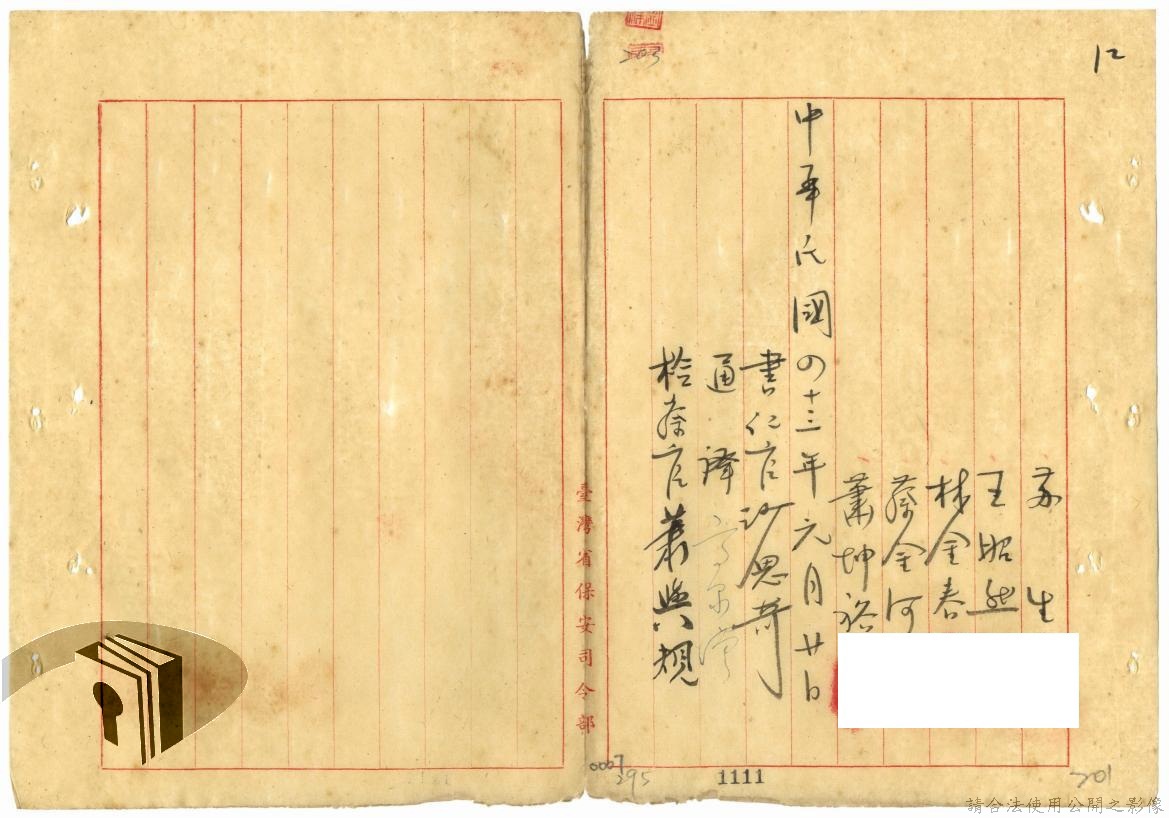 12
苏生
王昭然
林金春
蔡金河
蕭坤裕
中華民國の十三年元月廿日
書仁官沙思奇
通譯
检察官蕭與規
臺灣省保安司令部
0007
295
1111
201
請合法使用公開之影像